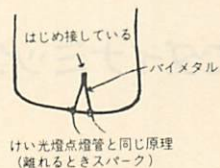 はじめ接している
バイメタル
けい光燈点燈管と同じ原理
(離れるときスパーク)